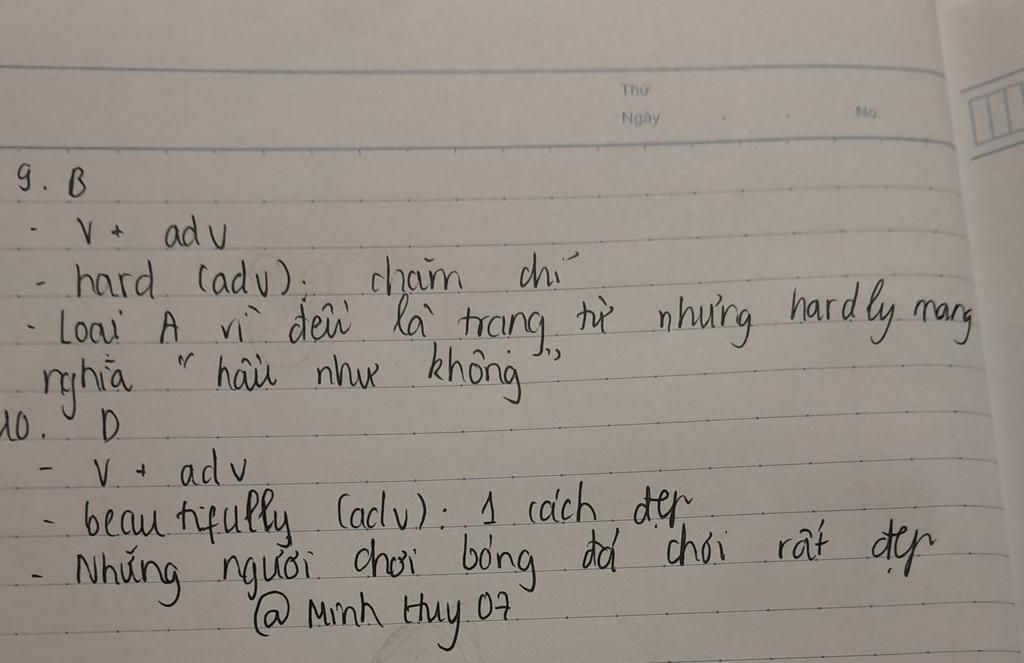 Thứ
Ngày No.
9. B
- V + adv
- hard (adv): chăm chỉ
- Loại A vì đều là trạng từ nhưng hardly mang
nghĩa "hầu như không"
10. D
- V + adv
- beautifully (adv): 1 cách đẹp
- Những người chơi bóng đá chơi rất đẹp
@ Minh Huy 07